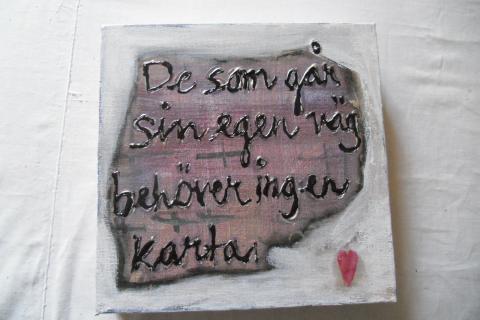 De som går
sin egen väg
behöver ingen
karta.